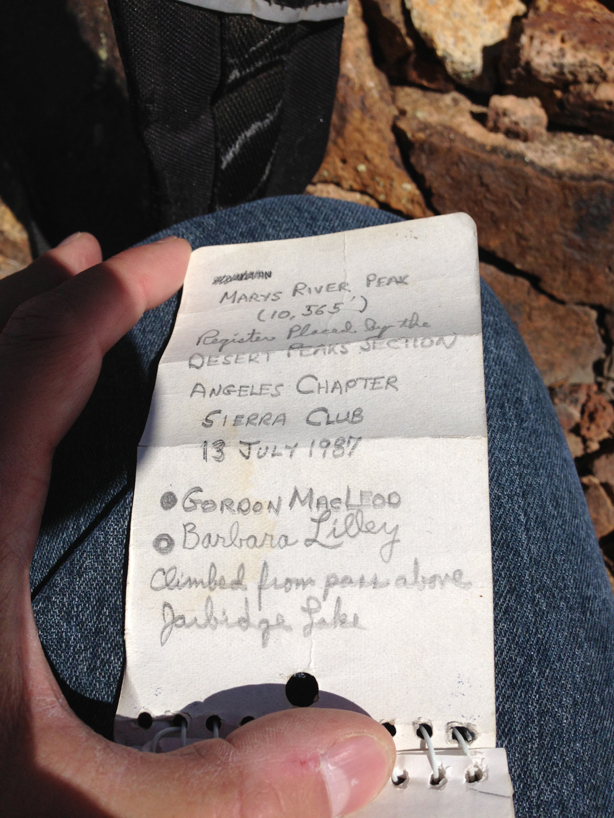 MARYS RIVER PEAK
(10,565')
Register Placed by the
DESERT PEAKS SECTION
ANGELES CHAPTER
SIERRA CLUB
13 JULY 1987
GORDON MACLEOD
Barbara Lilley
Climbed from pass above
Jarbidge Lake